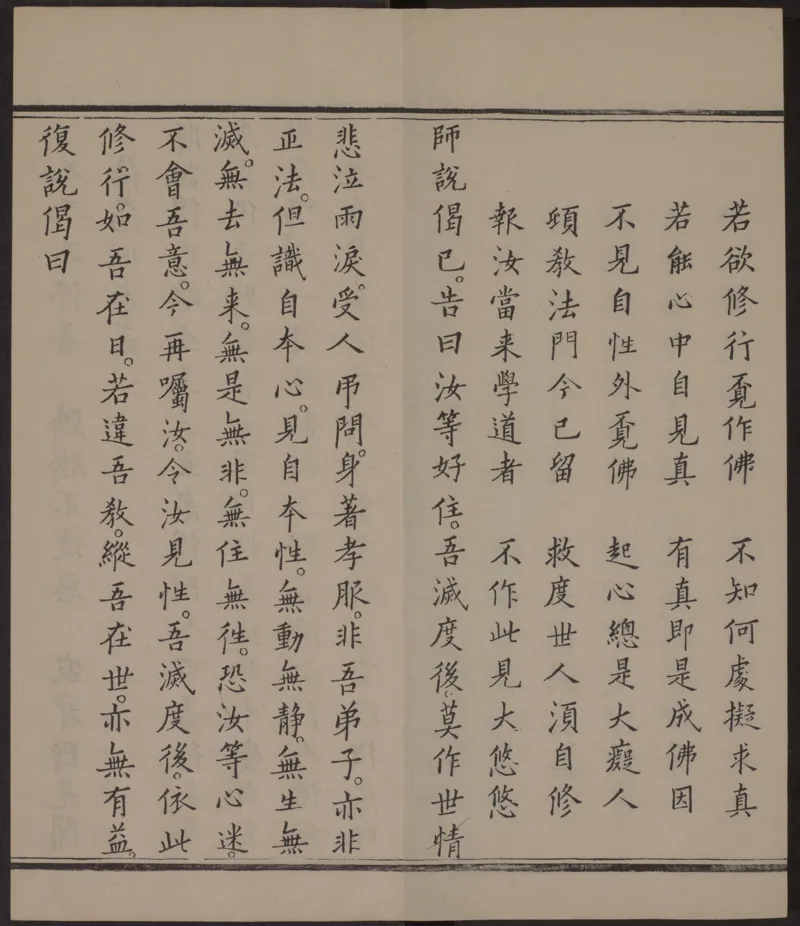 若欲修行覔作佛　不知何處擬求真
若能心中自見真　有真即是成佛因
不見自性外覔佛　起心總是大癡人
頓教法門今已留　救度世人須自修
報汝當来學道者　不作此見大悠悠
師說偈已。告曰汝等好住。吾滅度後。莫作世情
悲泣雨淚。受人弔問。身著孝服。非吾弟子。亦非
正法。但識自本心。見自本性。無動無静。無生無
滅。無去無来。無是無非。無住無徃。恐汝等心迷。
不會吾意。今再囑汝。令汝見性。吾滅度後。依此
修行。如吾在日。若違吾教。縱吾在世。亦無有益。
復說偈曰